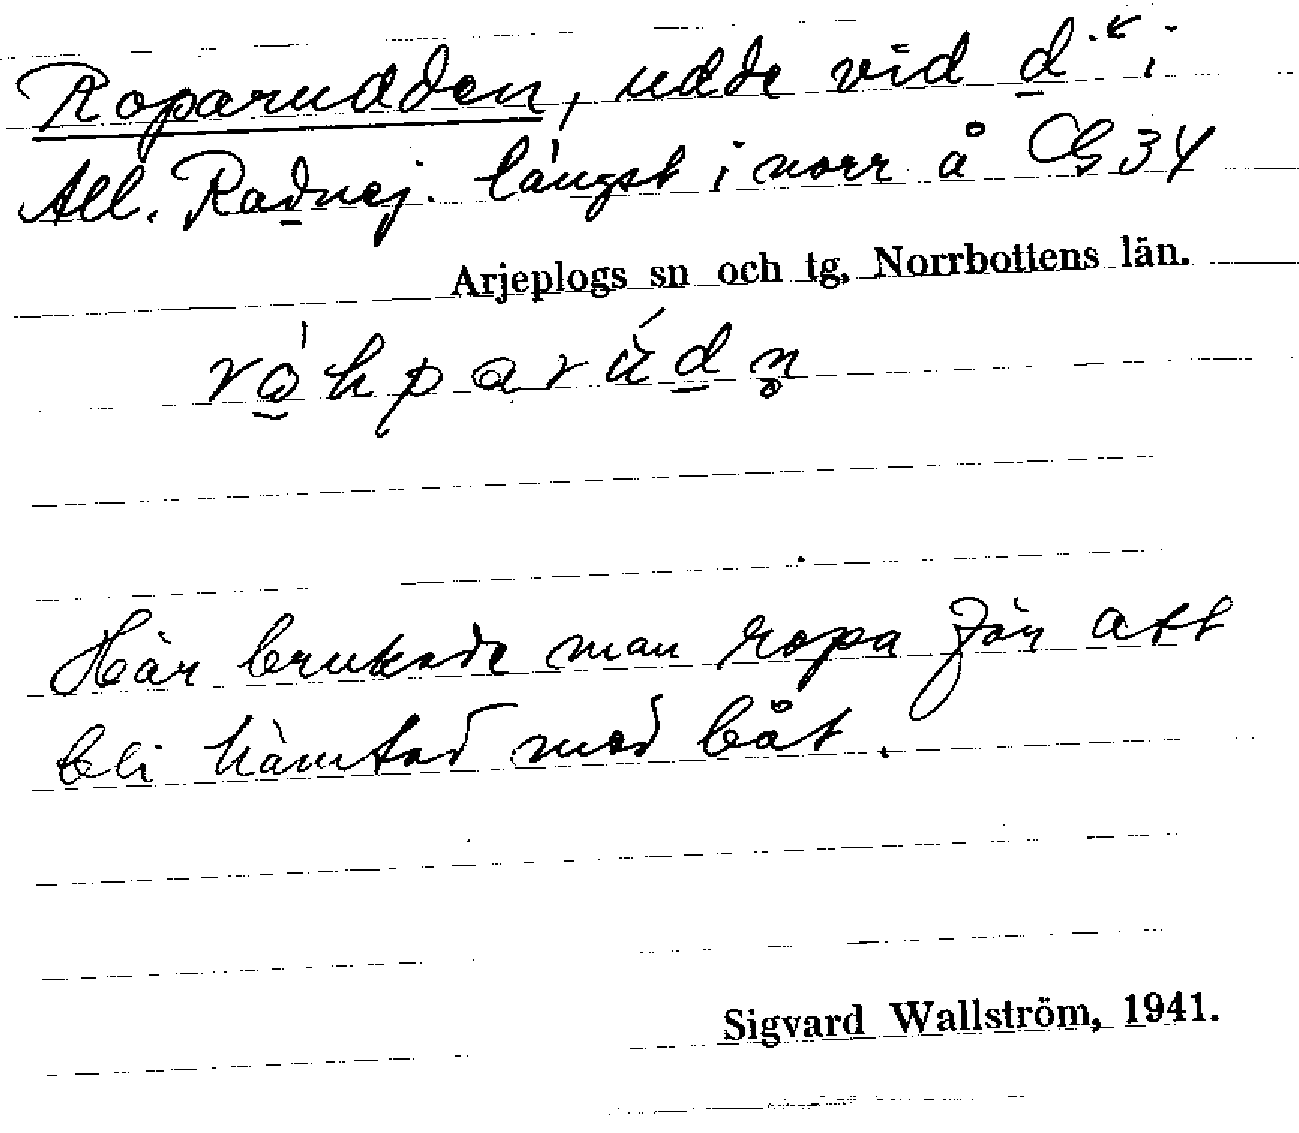 Roparudden, udde vid d i
All. Radnej. längst i norr å CG 34
Arjeplogs sn och tg, Norrbottens län.
Här brukade man ropa för att
bli hämtad med båt.
Sigvard Wallström, 1941.